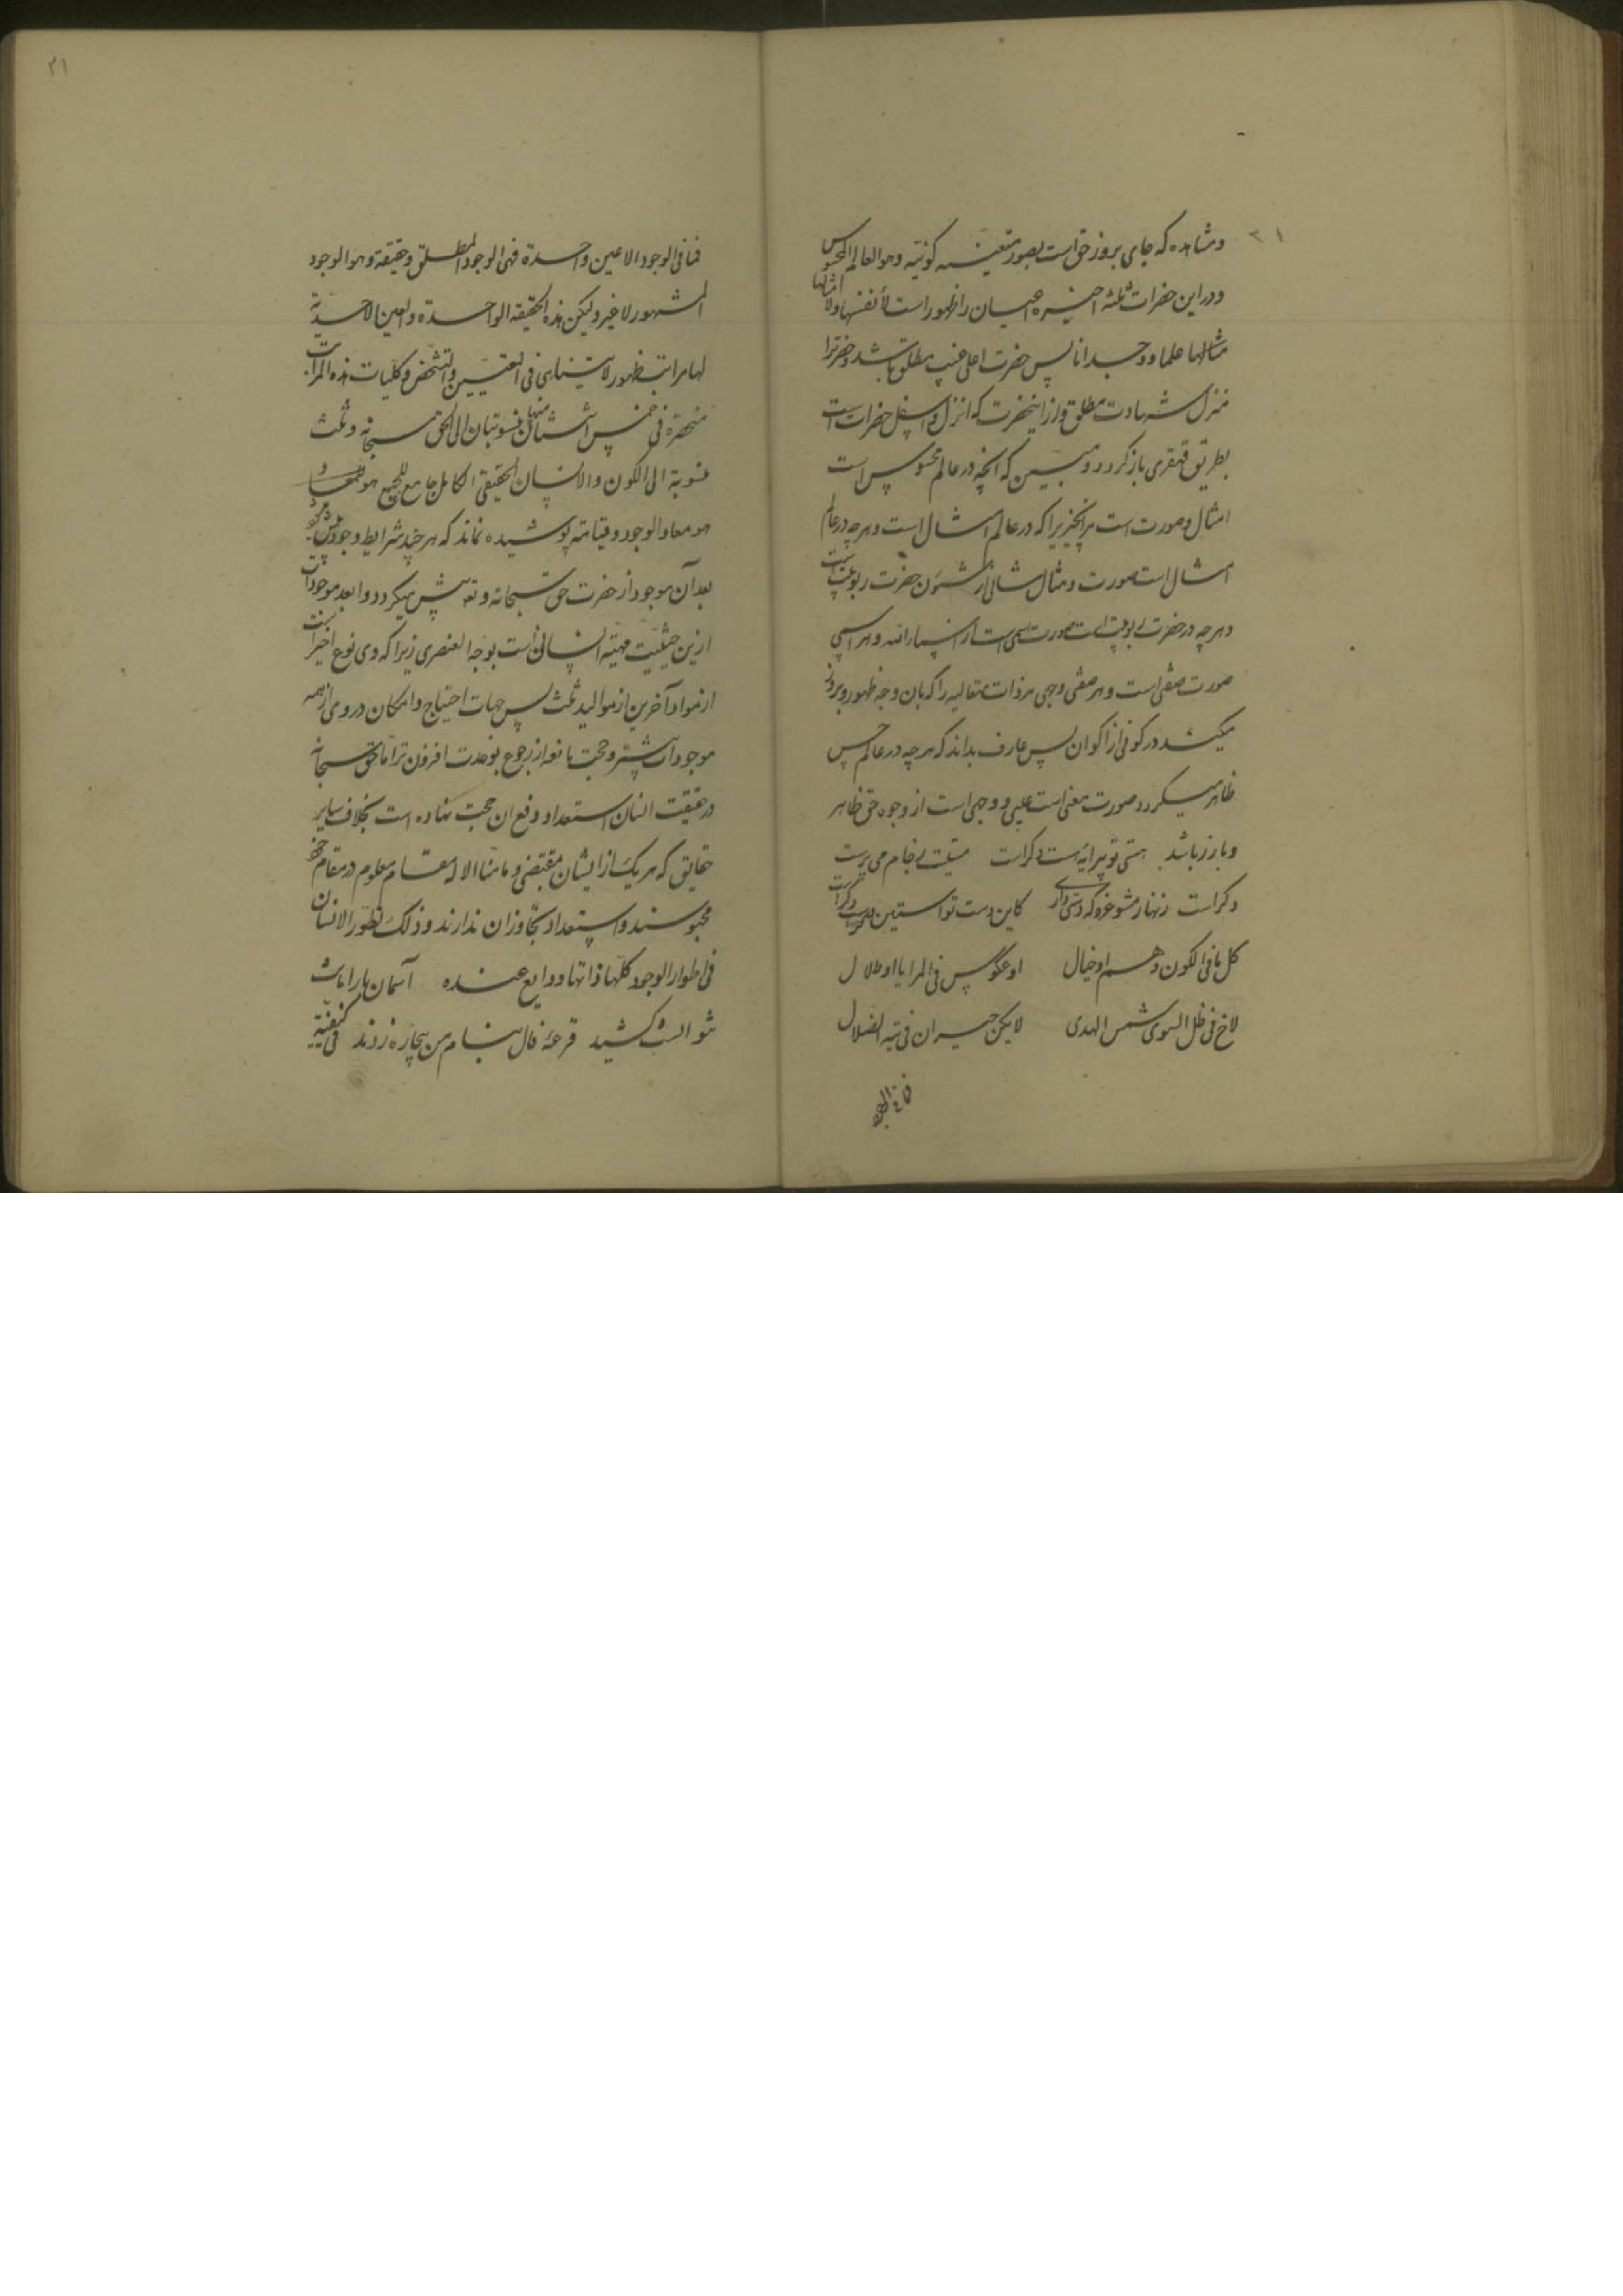 ومشاهده که جای بروز حق است بصور متعینه کونیه وهو العالم المحسوس
ودر این حضرات ثلثه اخیره اعیان را ظهور است لأنفسها ولا مثالها
مثالها علما ووجدانا پس حضرت اعلی غیب مطلق باشد وحضرت
منزل شهادت مطلق واز اینحضرت که انزل واسفل حضرات است
بطریق قهقری باز گردد و ببین که آنچه در عالم محسوس است
امثال وصورت است هر آنچیزیرا که در عالم امثال است وهر چه در عالم
امثال است صورت ومثال شانی از شئون حضرت ربوبیت است
وهر چه در حضرت ربوبیت است صورت اسمی است از اسماء الله وهر اسمی
صورت صفتی است وهر صفتی وجهی مر ذات متعالیه را که بان وجه ظهور وبروز
میکند در کونی از اکوان پس عارف بداند که هر چه در عالم حس
ظاهر میگردد صورت معنی است غیبی و وجهی است از وجوه حق ظاهر
وبارز باشد هستی تو پیرایه هست دگراست مستیت ز جام می پرست
دگراست زنهار مشو غره که دستی داری کاین دست تو آستین دست دگراست
کل ما فی الکون وهم او خیال او عکوس فی المرایا او ظلال
لاح فی ظل السوی شمس الهدی لا تکن حیران فی تیه الضلال
فما فی الوجود
۳۱
فما فی الوجود الا عین واحدة فهی الوجود المطلق وحقیقة وهو الوجود
المشهور لا غیر ولیکن هذه الحقیقة الواحدة والعین الاحدیة
لها مراتب ظهور لا یتناهی فی التعیین والتشخص وکلیات هذه المراتب
منحصرة فی خمس اثنتان منها منسوبتان الی الحق سبحانه وثلث
منسوبة الی الکون والانسان الحقیقی الکامل جامع للجمیع هو
هو معاد الوجود وقیامته پوشیده نماند که هر چند شرایط وجود بیش بود
بعد آن موجود از حضرت حق سبحانه وتعه بیش میگردد وابعد موجودات
ازین حیثیت مهیته انسانی است بوجه العنصری زیرا که وی نوع اخیر است
از مواد آخرین از موالید ثلث پس جهات احتیاج وامکان در وی از همه
موجودات بیشتر وحجب مانعه از رجوع بوحدت افزون تر اما حق سبحانه
در حقیقت انسان استعداد رفع ان حجب نهاده است بخلاف سایر
حقایق که هر یک از ایشان مقتضی وما منا الا له مقام معلوم در مقام خود
محبوسند واستعداد تجاوز ان ندارند وذلک لظهور الانسان
فی اطوار الوجود کلها ذاتها وودایع عنده آسمان بار امانت
نتوانست کشید قرعهٔ فال بنام من بیچاره زدند فی کیفیة